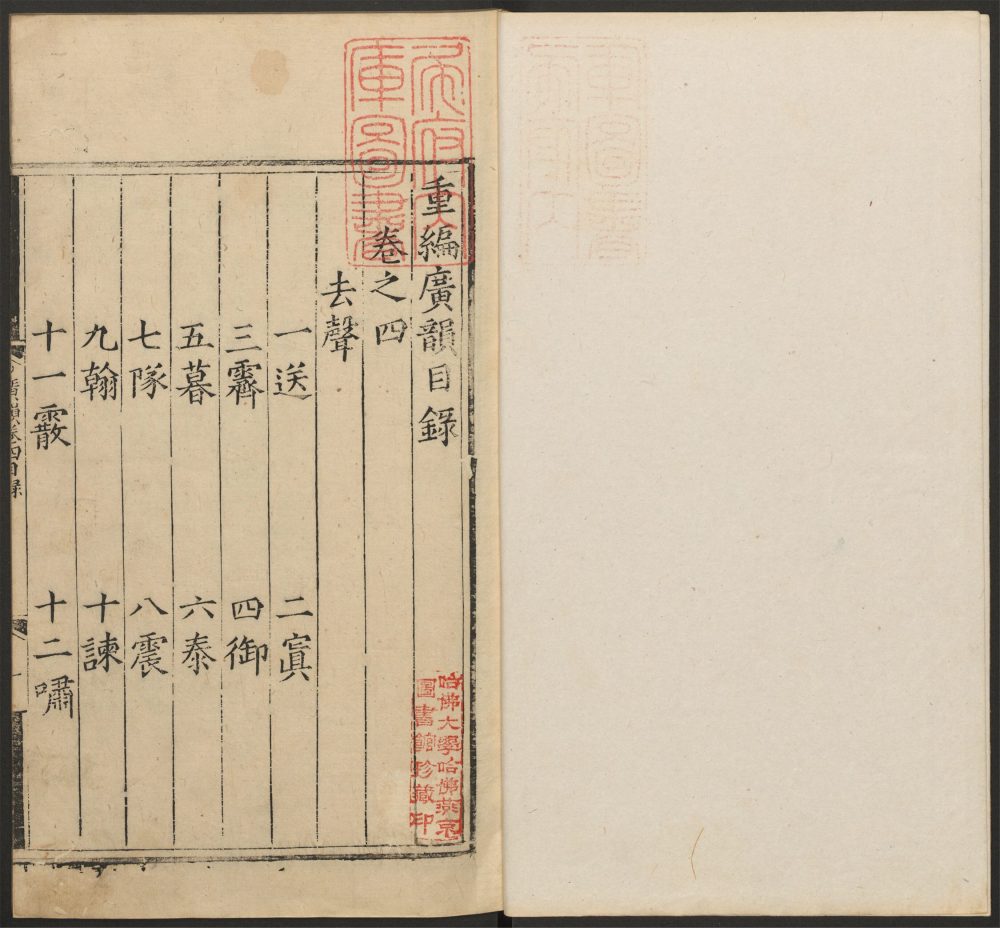 重編廣韻目錄
卷之四
去聲
一送 二寘
三霽 四御
五暮 六泰
七隊 八震
九翰 十諫
十一霰 十二嘯
廣韻卷四目錄
府文
庫圖書
哈佛大學哈佛燕京
圖書館珍藏印